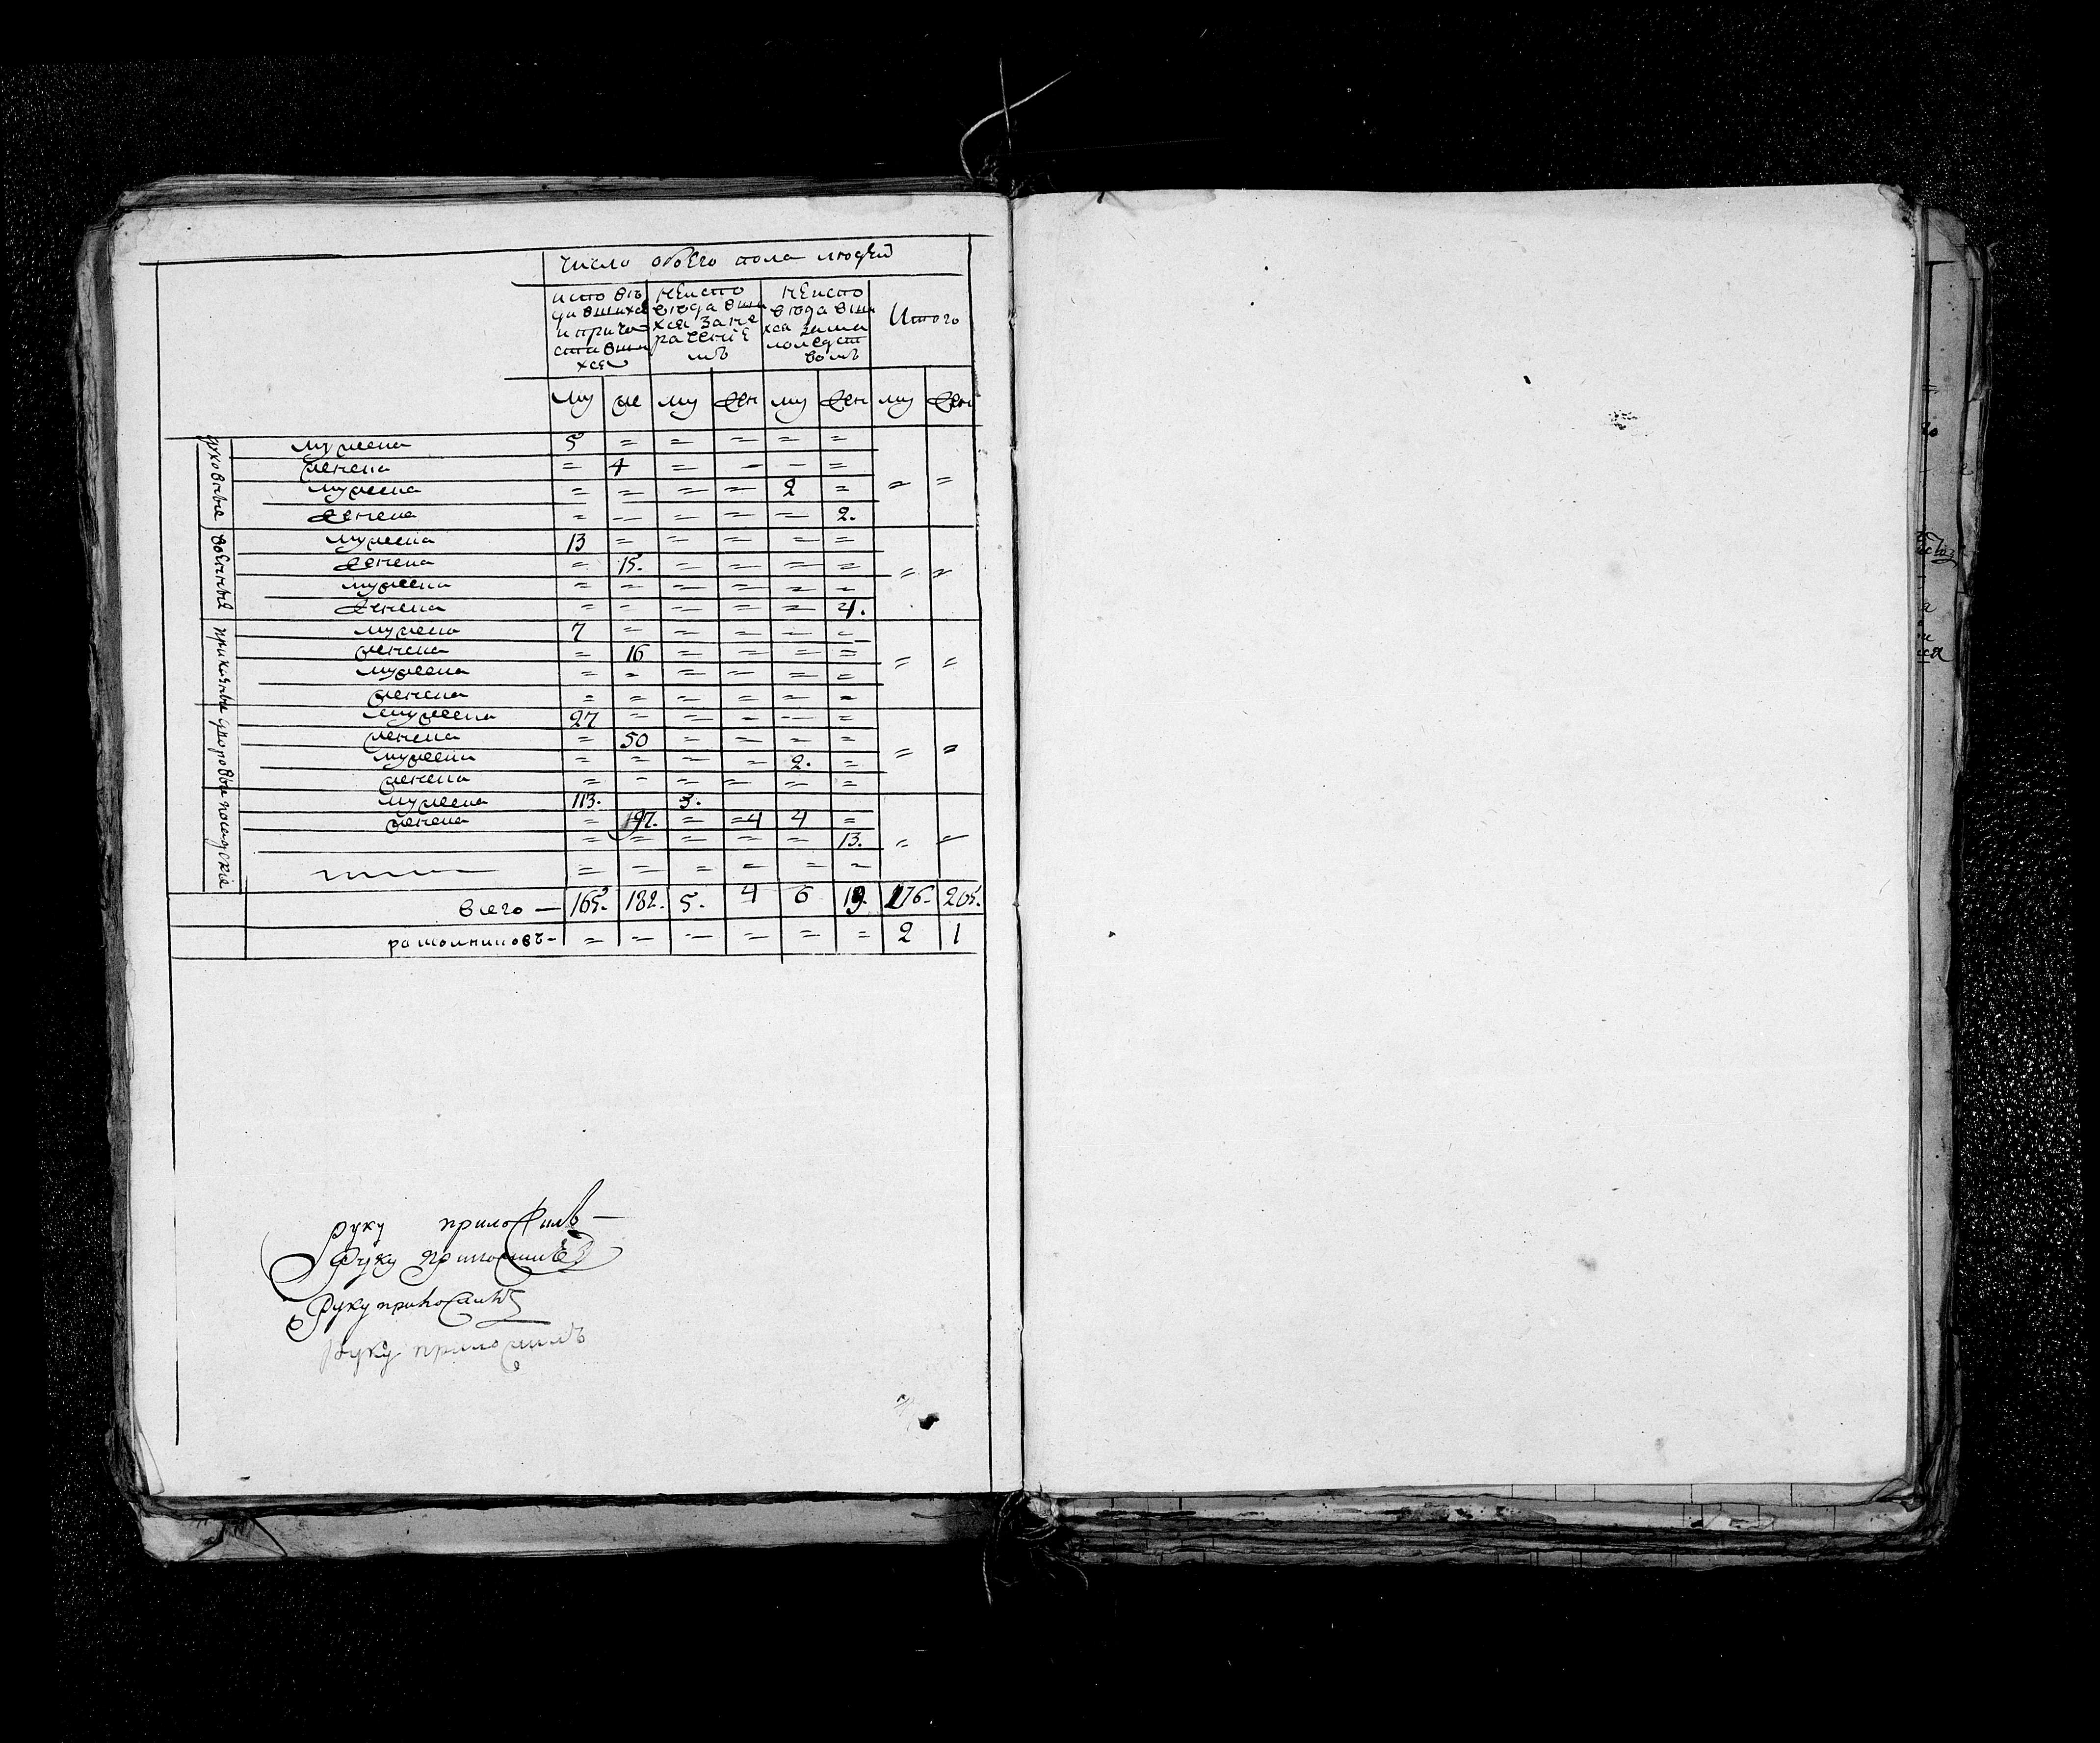 число обоего пола людей
исповѣдавшихся и причастившихся | неисповедавшихся за нерачениемъ | неисповедавшихся замалоледствомъ | Итого
му | же | му | жен | му | жен | му | жен
духовные
мужеска 5 = = = = =
женска = 4 = - - =
мужеска = = = = 2 = = =
женска = = = = = 2.
военные
мужеска 13 = = = = =
женска = 15. = = = =
мужеска = = = = = = = =
женска = = = = = 4.
приказные
мужеска 7 = = = = =
женска = 16 = = = =
мужеска = = = = = = = =
женска = = = = = =
дворовы
мужеска 27 = = - = =
женска = 50 = = = =
мужеска = = = = 2. = = =
женска = = = = = =
посадские
мужеска 113. 3.
женска = 197. = =4 4 =
= = = = = 13. = =
= = = = = =
всего — 165. 182. 5. 4 6 19. 176. 205.
раcколниковъ - = = = = = = 2 1
руку приложилъ
руку приложилъ
руку приложилъ
руку приложилъ